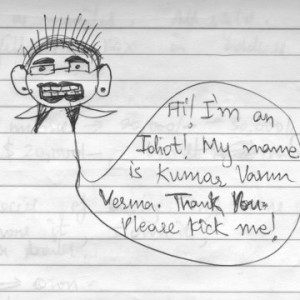 Hi! I'm an
Idiot! My name
is Kumar Varun
Verma. Thank You.
Please kick me!